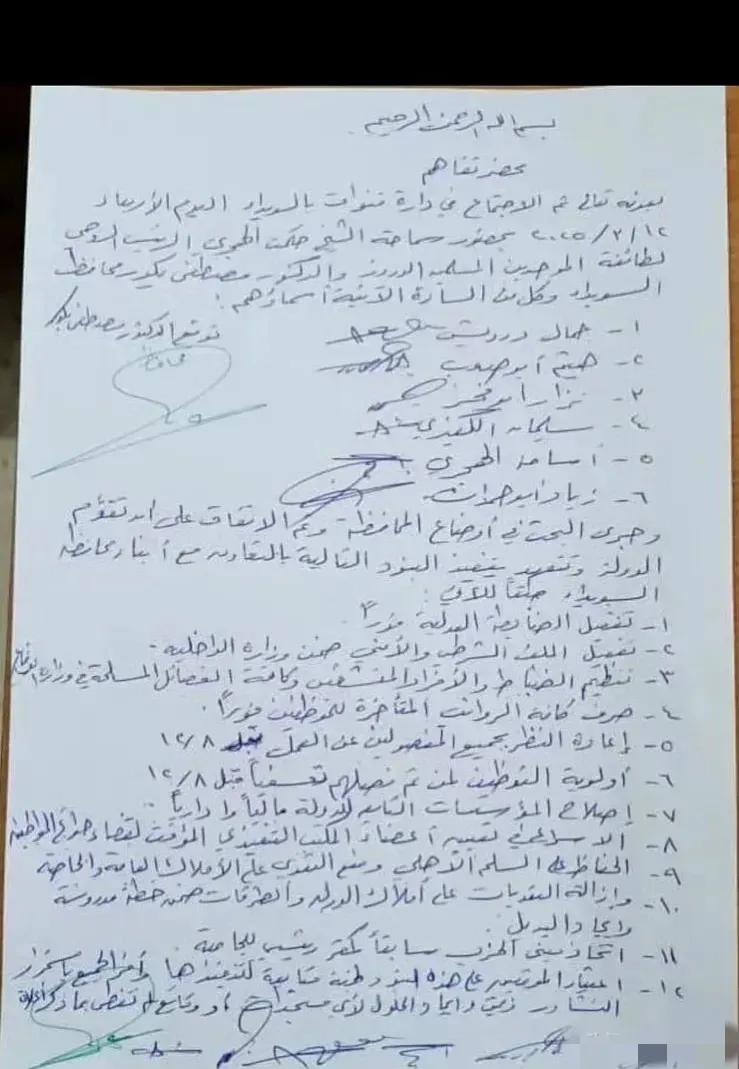 بسم الله الرحمن الرحيم
محضر تفاهم
بعونه تعالى تم الاجتماع في دارة قنوات بالسويداء اليوم الأربعاء
٢٠٢٥/٣/١٢ بحضور سماحة الشيخ حكمت الهجري الرئيس الروحي
لطائفة الموحدين المسلمين الدروز والدكتور مصطفى بكور محافظ
السويداء وكل من السادة الآتية أسماؤهم:
١- جمال درويش
توقيع الدكتور مصطفى بكور
محافظ
٢- هيثم
٣- نزار أبو فخر
٤- سليمان الكفيري
٥- أسامة الهجري
٦- زياد أبو حمدان
وجرى البحث في أوضاع المحافظة وتم الاتفاق على أن تقوم
الدولة وتتعهد بتنفيذ البنود التالية بالتعاون مع أبناء محافظة
السويداء للآتي:
١- تفعيل الضابطة العدلية فوراً.
٢- تفعيل الملف الشرطي والأمني ضمن وزارة الداخلية.
٣- تنظيم الضباط والأفراد المنشقين وكافة الفصائل المسلحة في وزارة الدفاع
٤- صرف كافة الرواتب المتأخرة للموظفين فوراً.
٥- إعادة النظر بجميع المفصولين عن العمل قبل ١٢/٨
٦- أولوية التوظيف لمن تم فصلهم تعسفياً قبل ١٢/٨
٧- إصلاح المؤسسات التابعة للدولة مالياً وإدارياً.
٨- الإسراع في تعيين أعضاء المكتب التنفيذي المؤقت لقضاء حوائج المواطنين
٩- الحفاظ على السلم الأهلي ومنع التعدي على الأملاك العامة والخاصة
١٠- وإزالة التعديات على أملاك الدولة والطرقات ضمن خطة مدروسة
وإيجاد البديل.
١١- اتخاذ مبنى الحزب سابقاً كمقر رئيسي للجامعة
١٢- اعتبار الموقعين على هذه البنود لجنة متابعة لتنفيذها